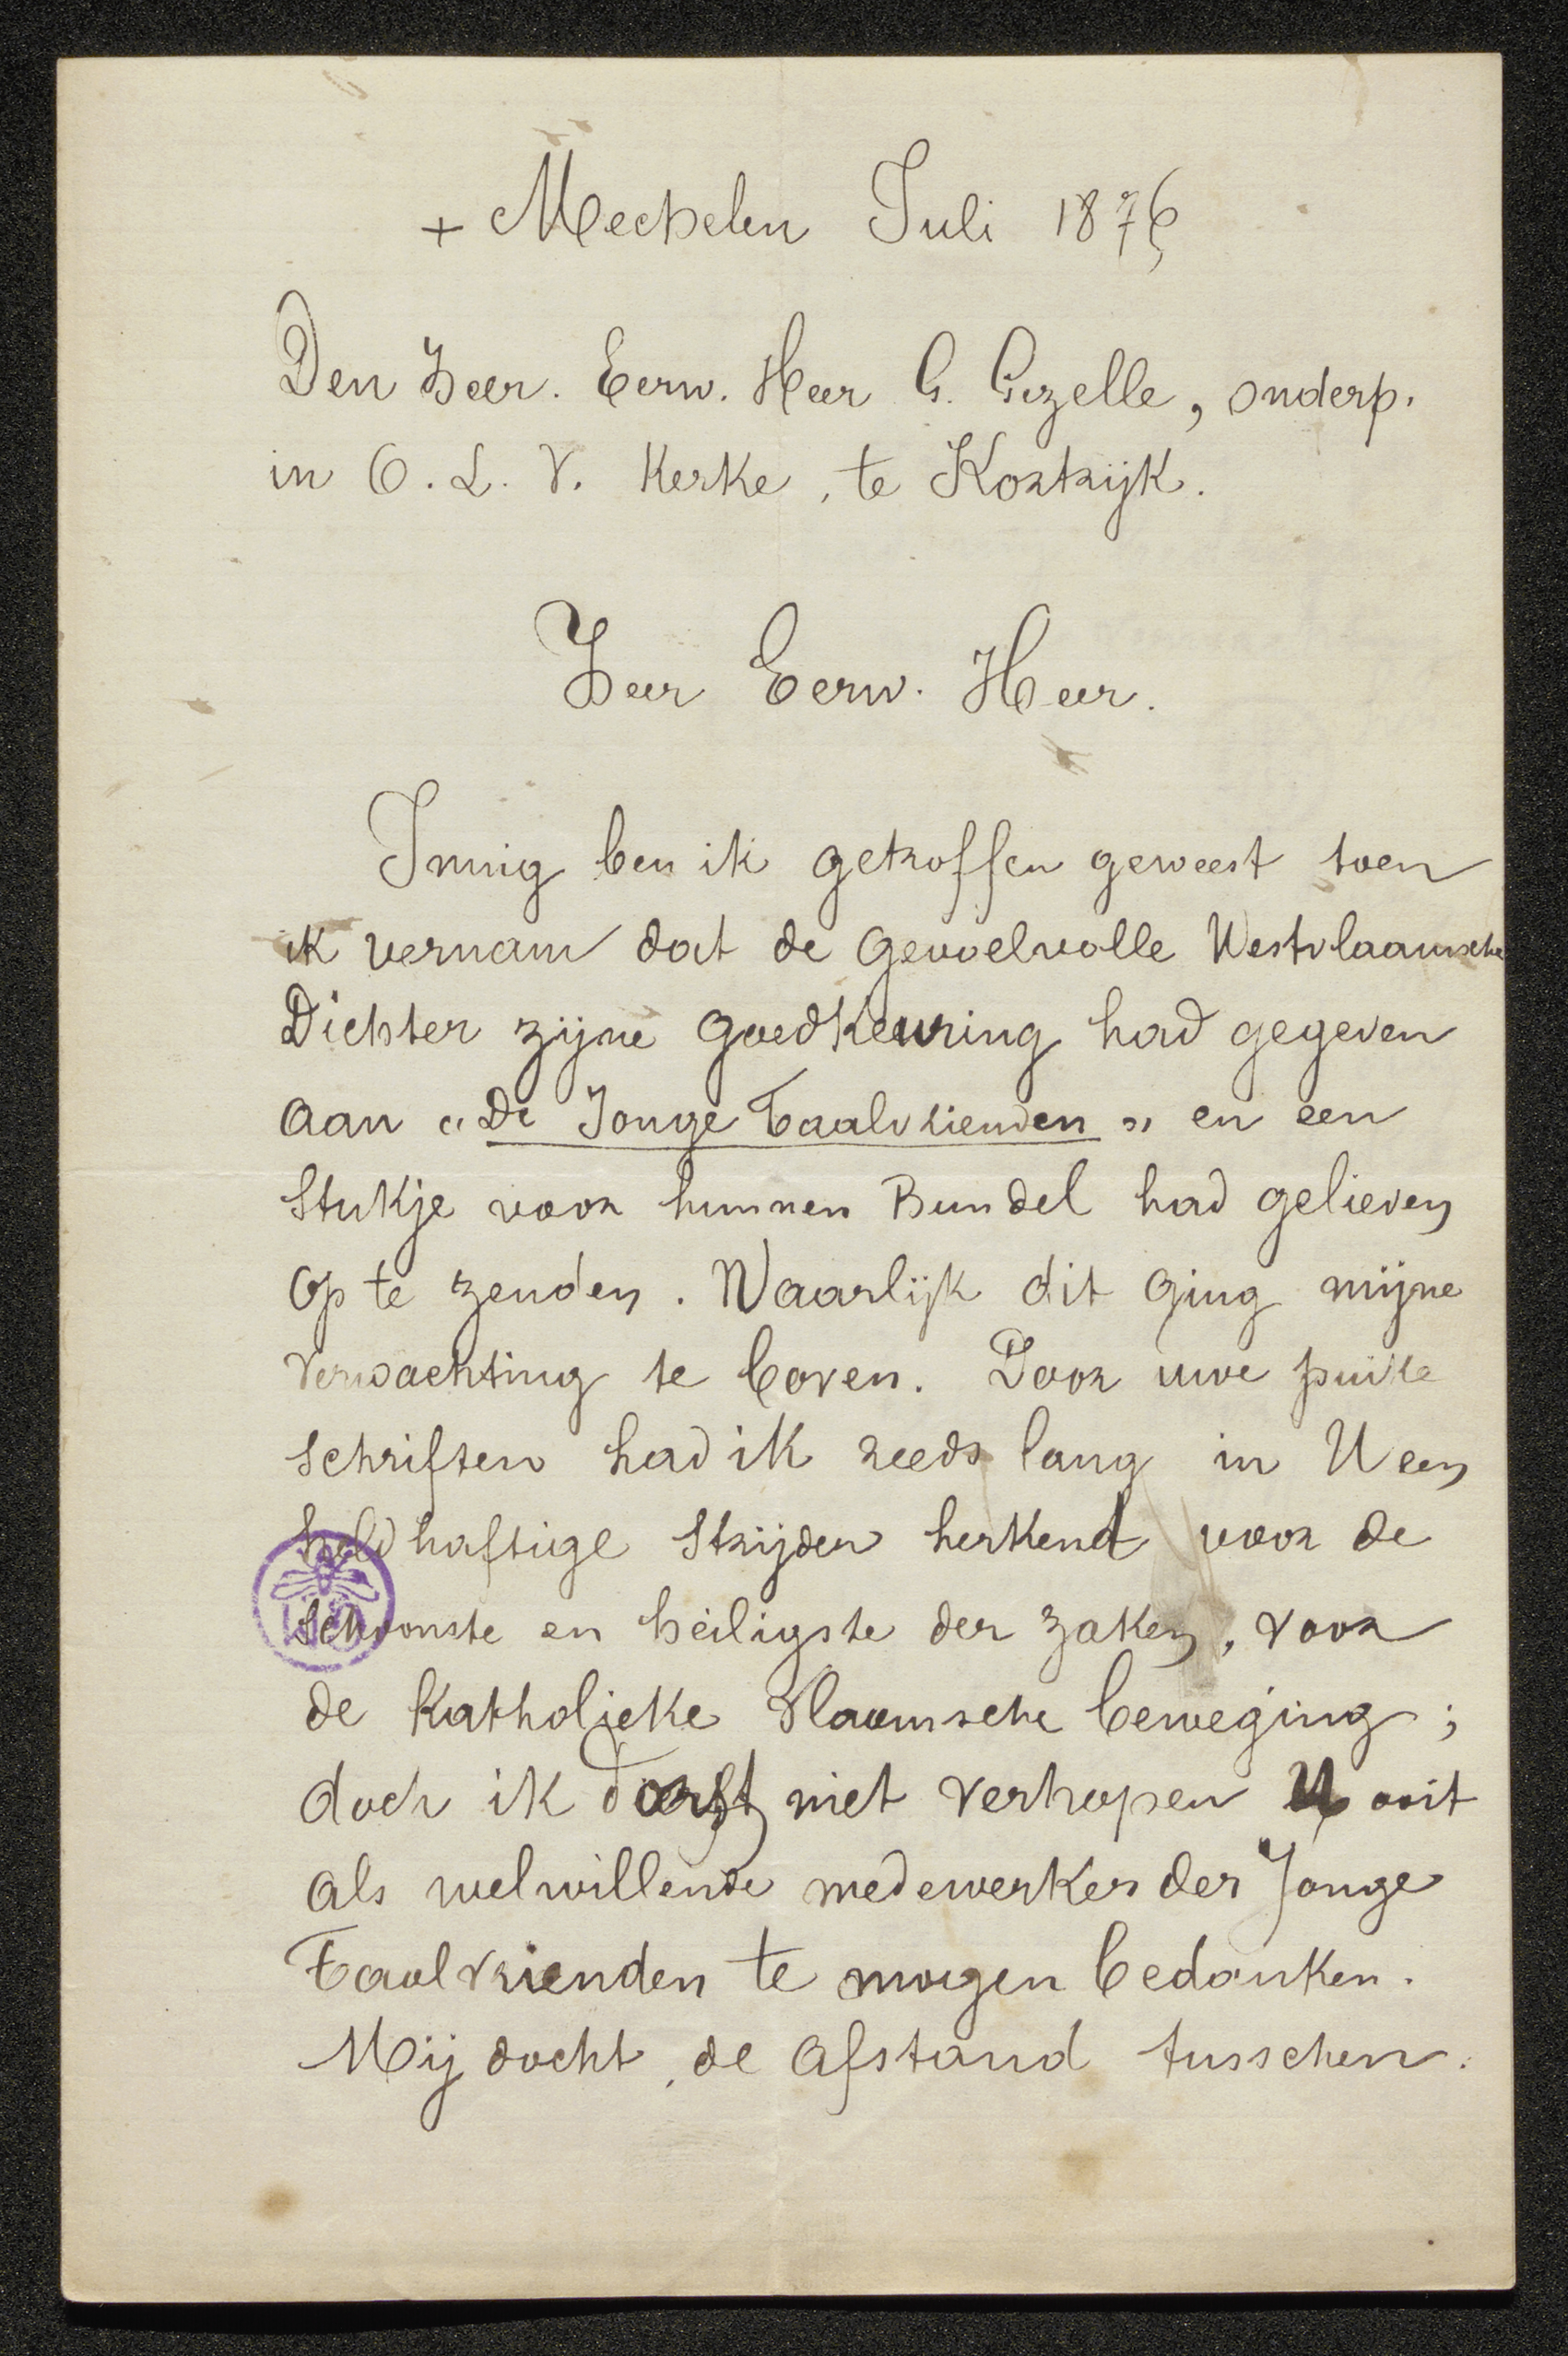 + Mechelen Juli 1876
Den Zeer. Eerw. Heer G. Gezelle, onderp.
in O. L. V. Kerke, te Kortrijk.
Zeer Eerw. Heer.
Innig ben ik getroffen geweest toen
ik vernam dat de gevoelvolle Westvlaamsche
Dichter zijne goedkeuring had gegeven
aan "De Jonge Taalvrienden" en een
stukje voor hunnen Bundel had gelieven
op te zenden. Waarlijk dit ging mijne
verwachting te boven. Door uwe puike
schriften had ik reeds lang in U een
heldhaftige strijder herkend voor de
schoonste en heiligste der zaken, voor
de Katholieke Vlaamsche beweging;
doch ik dorst niet verhopen U ooit
als welwillende medewerker der Jonge
Taalvrienden te mogen bedanken.
Mij docht, de afstand tusschen